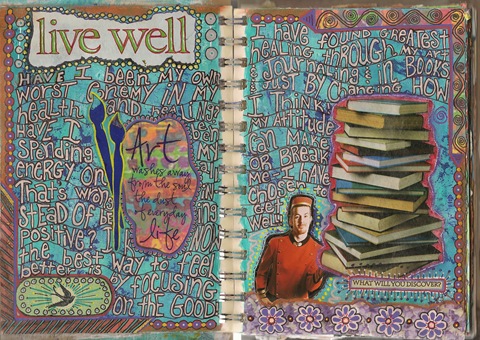 live well
HAVE I BEEN MY OWN
WORST ENEMY IN MY
HEALTH AND
HAVE I
SPENDING
ENERGY ON
THAT'S WRONG
STEAD OF BE
POSITIVE?
THE BEST WAY TO FEEL
BETTER IS BY FOCUSING
ON THE GOOD!
Art
washes away
from the soul
the dust
of everyday
life
I HAVE FOUND GREATEST
HEALING THROUGH MY ART
JOURNALING & IN BOOKS
JUST BY CHANGING HOW
I THINK
MY ATTITUDE
CAN MAKE
OR BREAK
ME. I HAVE
CHOSEN TO
GET
WELL!
WHAT WILL YOU DISCOVER?